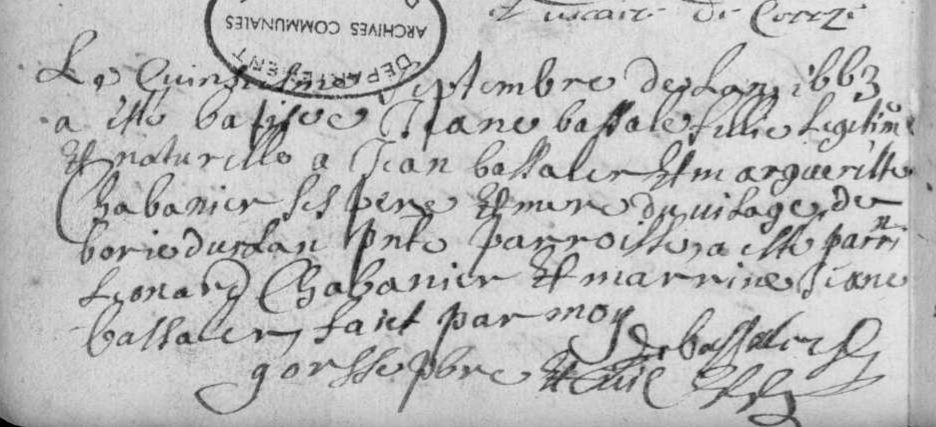 vicaire de Correze
ARCHIVES COMMUNALES
DEPARTEMENT
Le Quinsiesme Septembre de Lan 1663
a esté batisee Jeane bassaler fillie Legitime
Et naturelle a Jean bassaler Et margueritte
Chabanier ses pere Et mere du vilage de
borie du clan pnte parroisse, a esté parrn
Leonard Chabanier Et marrine Jeane
bassaler, faict par moy
de bassaler
gorsse pbre Et vic